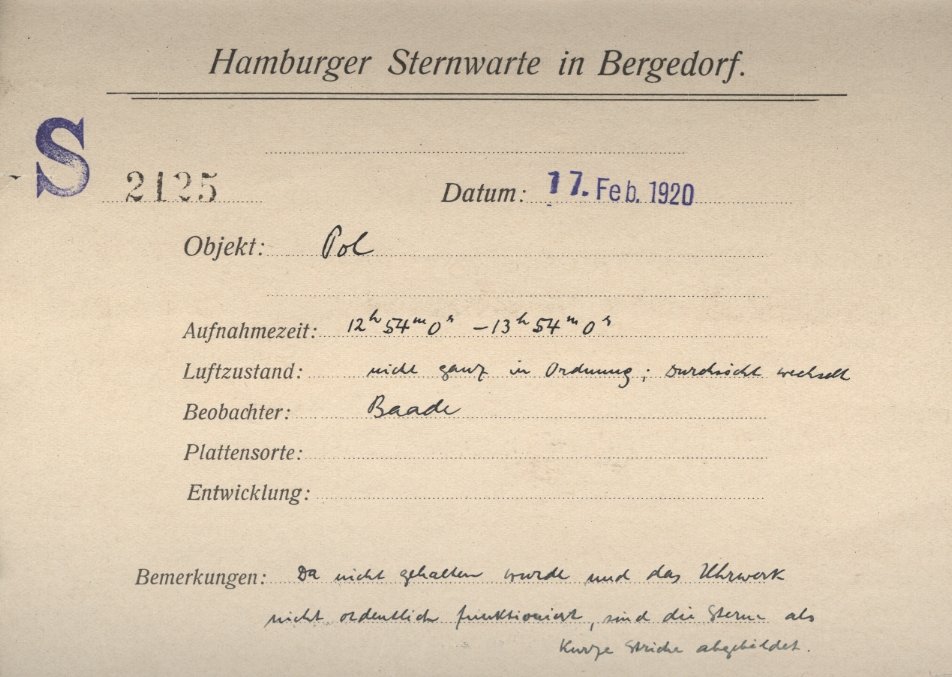 Hamburger Sternwarte in Bergedorf.
S 2125 Datum: 17. Feb. 1920
Objekt: Pol
Aufnahmezeit: 12h 54m 0s – 13h 54m 0s
Luftzustand: nicht ganz in Ordnung; Durchsicht wechselt
Beobachter: Baade
Plattensorte:
Entwicklung:
Bemerkungen: Da nicht gehalten wurde und das Uhrwerk
nicht ordentlich funktioniert, sind die Sterne als
kurze Striche abgebildet.